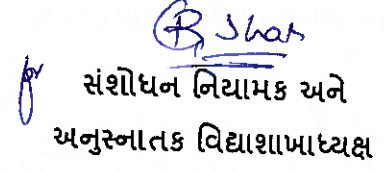 for
સંશોધન નિયામક અને
અનુસ્નાતક વિદ્યાશાખાધ્યક્ષ